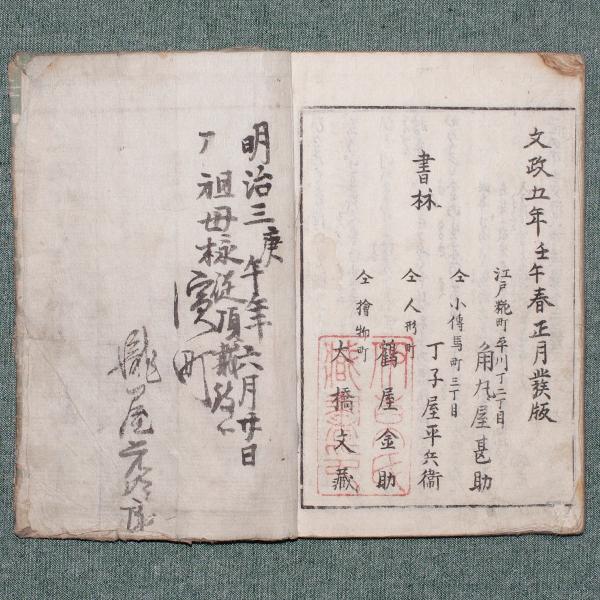 文政五年壬午春正月發版
江戸糀町平川丁二丁目
角丸屋甚助
仝小傳馬町三丁目
丁子屋平兵衞
書林
仝人形町
鶴屋金助
仝檜物町
大橋文藏
明治三庚午年六月廿日
祖母様従頂戴
濱町
屋